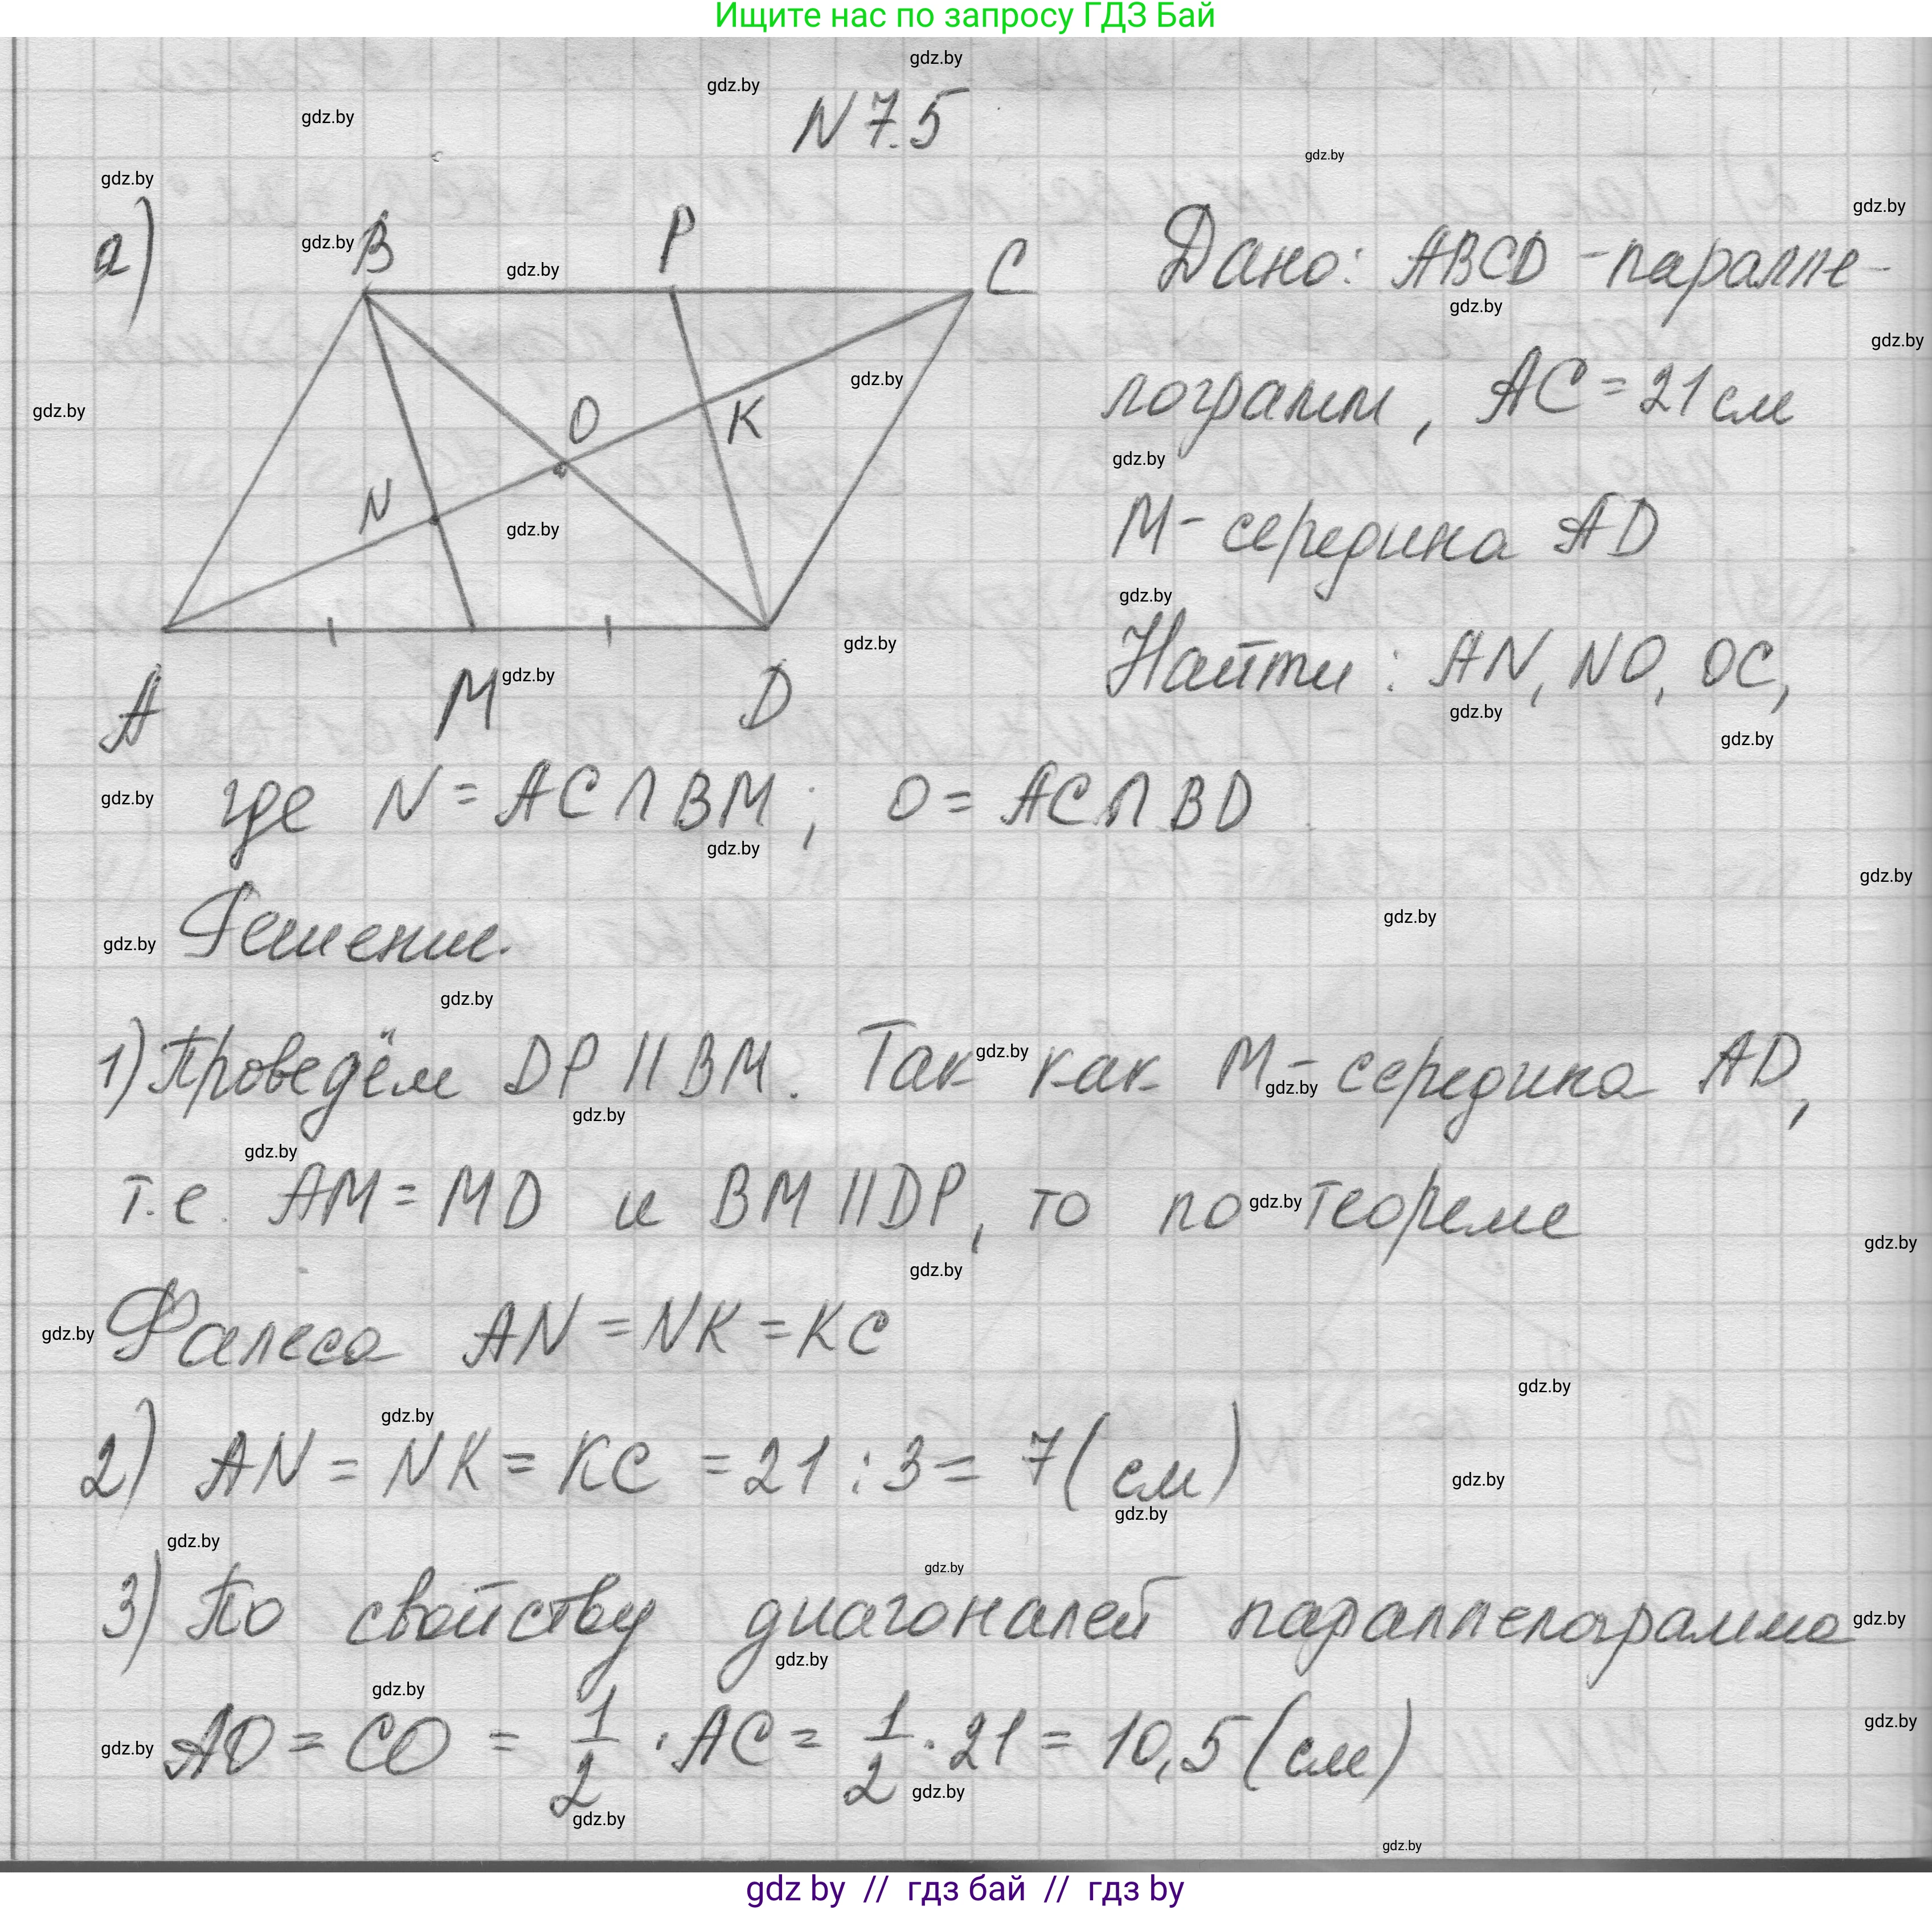 Ищите нас по запросу ГДЗ Бай
gdz.by
N 7.5
а)
B P C
O K
N
A M D
Дано: ABCD - паралле-
лограмм, AC = 21 см
M - середина AD
Найти: AN, NO, OC,
где N = AC ∩ BM; O = AC ∩ BD
Решение.
1) Проведём DP || BM. Так как M - середина AD,
т.е. AM = MD и BM || DP, то по теореме
Фалеса AN = NK = KC
2) AN = NK = KC = 21 : 3 = 7 (см)
3) По свойству диагоналей параллелограмма
AO = CO = 1/2 · AC = 1/2 · 21 = 10,5 (см)
gdz by // гдз бай // гдз by